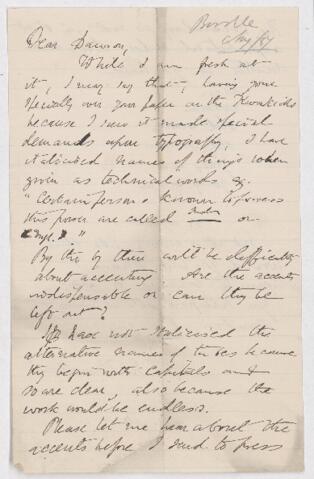 Dear Dawson,
While I am fresh at
it, I may say that, having gone
specially over your paper on the Kwakiools
because I saw it made special
demands upon typography, I have
italicised names of things when
given as technical words eg.
"Certain persons known to possess
this power are called or
By the by there will be difficulty
about accenting. Are the accents
indispensable or can they be
left out?
I have not italicised the
alternative names of tribes because
they begin with capitals and
so are clear, also because the
work would be endless.
Please let me hear about the
accents before I send to press